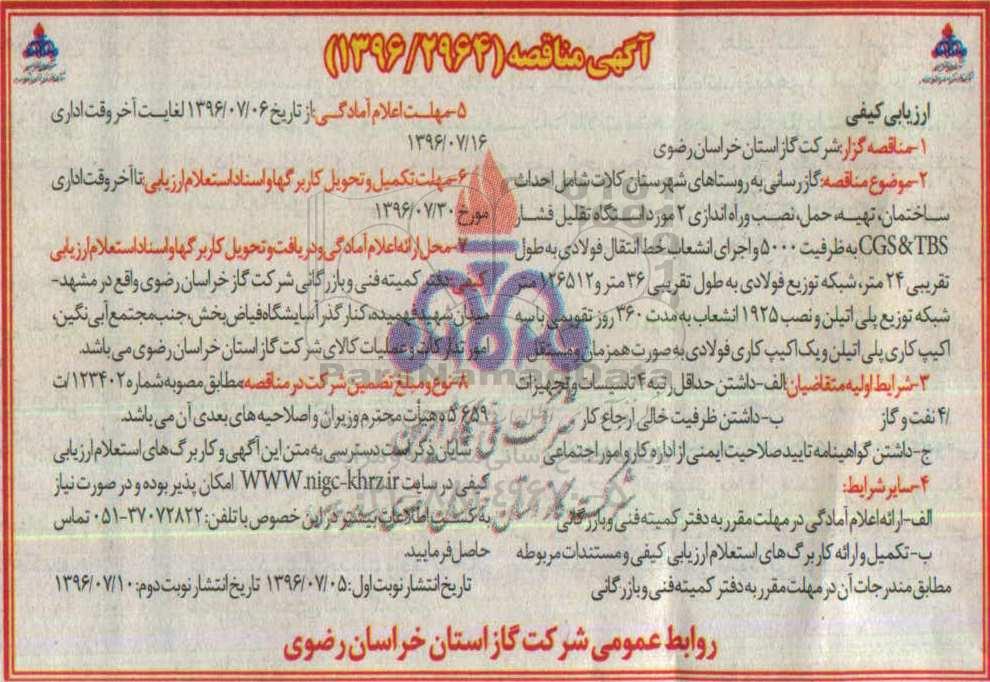 آگهی مناقصه (۱۳۹۶/۲۹۶۴)
ارزیابی کیفی
۱-مناقصه گزار: شرکت گاز استان خراسان رضوی
۲-موضوع مناقصه: گازرسانی به روستاهای شهرستان کلات شامل احداث
ساختمان، تهیه، حمل، نصب و راه اندازی ۲ مورد ایستگاه تقلیل فشار
CGS&TBS به ظرفیت ۵۰۰۰ و اجرای انشعاب خط انتقال فولادی به طول
تقریبی ۲۴ متر، شبکه توزیع فولادی به طول تقریبی ۳۶ متر و ۱۲۶۵۱۲ متر
شبکه توزیع پلی اتیلن و نصب ۱۹۲۵ انشعاب به مدت ۳۶۰ روز تقویمی با سه
اکیپ کاری پلی اتیلن و یک اکیپ کاری فولادی به صورت همزمان و مستقل
۳-شرایط اولیه متقاضیان: الف-داشتن حداقل رتبه ۴ تاسیسات و تجهیزات
/۴ نفت و گاز ب-داشتن ظرفیت خالی ارجاع کار
ج-داشتن گواهینامه تایید صلاحیت ایمنی از اداره کار و امور اجتماعی
۴-سایر شرایط:
الف-ارائه اعلام آمادگی در مهلت مقرر به دفتر کمیته فنی و بازرگانی
ب-تکمیل و ارائه کاربرگ های استعلام ارزیابی کیفی و مستندات مربوطه
مطابق مندرجات آن در مهلت مقرر به دفتر کمیته فنی و بازرگانی
۵-مهلت اعلام آمادگی: از تاریخ ۱۳۹۶/۰۷/۰۶ لغایت آخر وقت اداری
۱۳۹۶/۰۷/۱۶
۶-مهلت تکمیل و تحویل کاربرگها و اسناد استعلام ارزیابی: تا آخر وقت اداری
مورخ ۱۳۹۶/۰۷/۳۰
۷-محل ارائه اعلام آمادگی و دریافت و تحویل کاربرگها و اسناد استعلام ارزیابی
کیفی: دفتر کمیته فنی و بازرگانی شرکت گاز خراسان رضوی واقع در مشهد-
میدان شهید فهمیده، کنار گذر آسایشگاه فیاض بخش، جنب مجتمع آبی نگین،
امور تدارکات و عملیات کالای شرکت گاز استان خراسان رضوی می باشد.
۸-نوع و مبلغ تضمین شرکت در مناقصه: مطابق مصوبه شماره ۱۲۳۴۰۲/ت
۵۰۶۵۹ ه هیأت محترم وزیران و اصلاحیه های بعدی آن می باشد.
شایان ذکر است دسترسی به متن این آگهی و کاربرگ های استعلام ارزیابی
کیفی در سایت WWW.nigc-khrz.ir امکان پذیر بوده و در صورت نیاز
به کسب اطلاعات بیشتر در این خصوص با تلفن: ۳۷۰۷۲۸۲۲-۰۵۱ تماس
حاصل فرمایید.
تاریخ انتشار نوبت اول: ۱۳۹۶/۰۷/۰۵ تاریخ انتشار نوبت دوم: ۱۳۹۶/۰۷/۱۰
روابط عمومی شرکت گاز استان خراسان رضوی
ParsNamadData